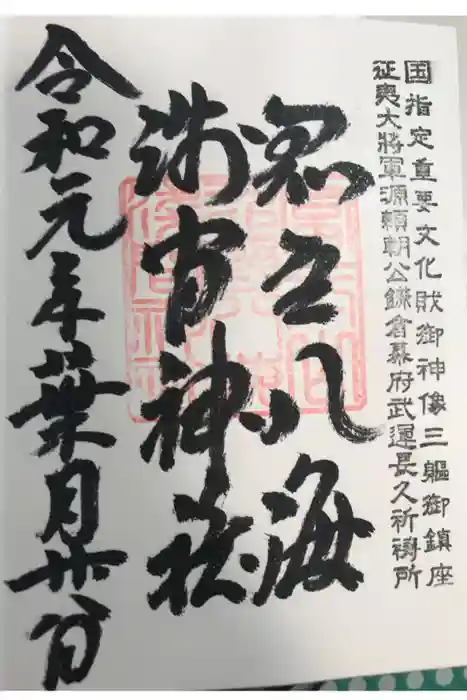 国指定重要文化財御神像三軀御鎮座
征夷大將軍源頼朝公鎌倉幕府武運長久祈禱所
忍野八海
浅間神社
令和元年葉月廿八日